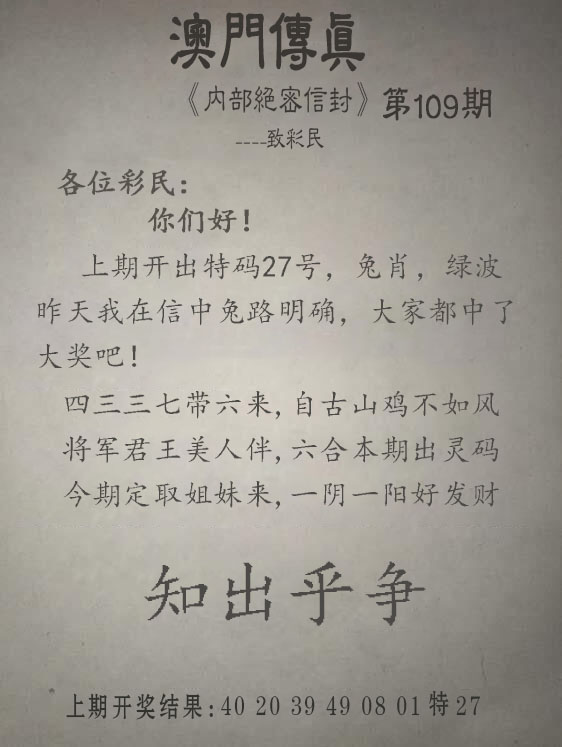 澳門傳眞
《内部絕密信封》第109期
----致彩民
各位彩民：
你们好！
上期开出特码27号，兔肖，绿波
昨天我在信中兔路明确，大家都中了
大奖吧！
四三三七带六来,自古山鸡不如风
将军君王美人伴,六合本期出灵码
今期定取姐妹来,一阴一阳好发财
知出乎争
上期开奖结果:40 20 39 49 08 01 特27